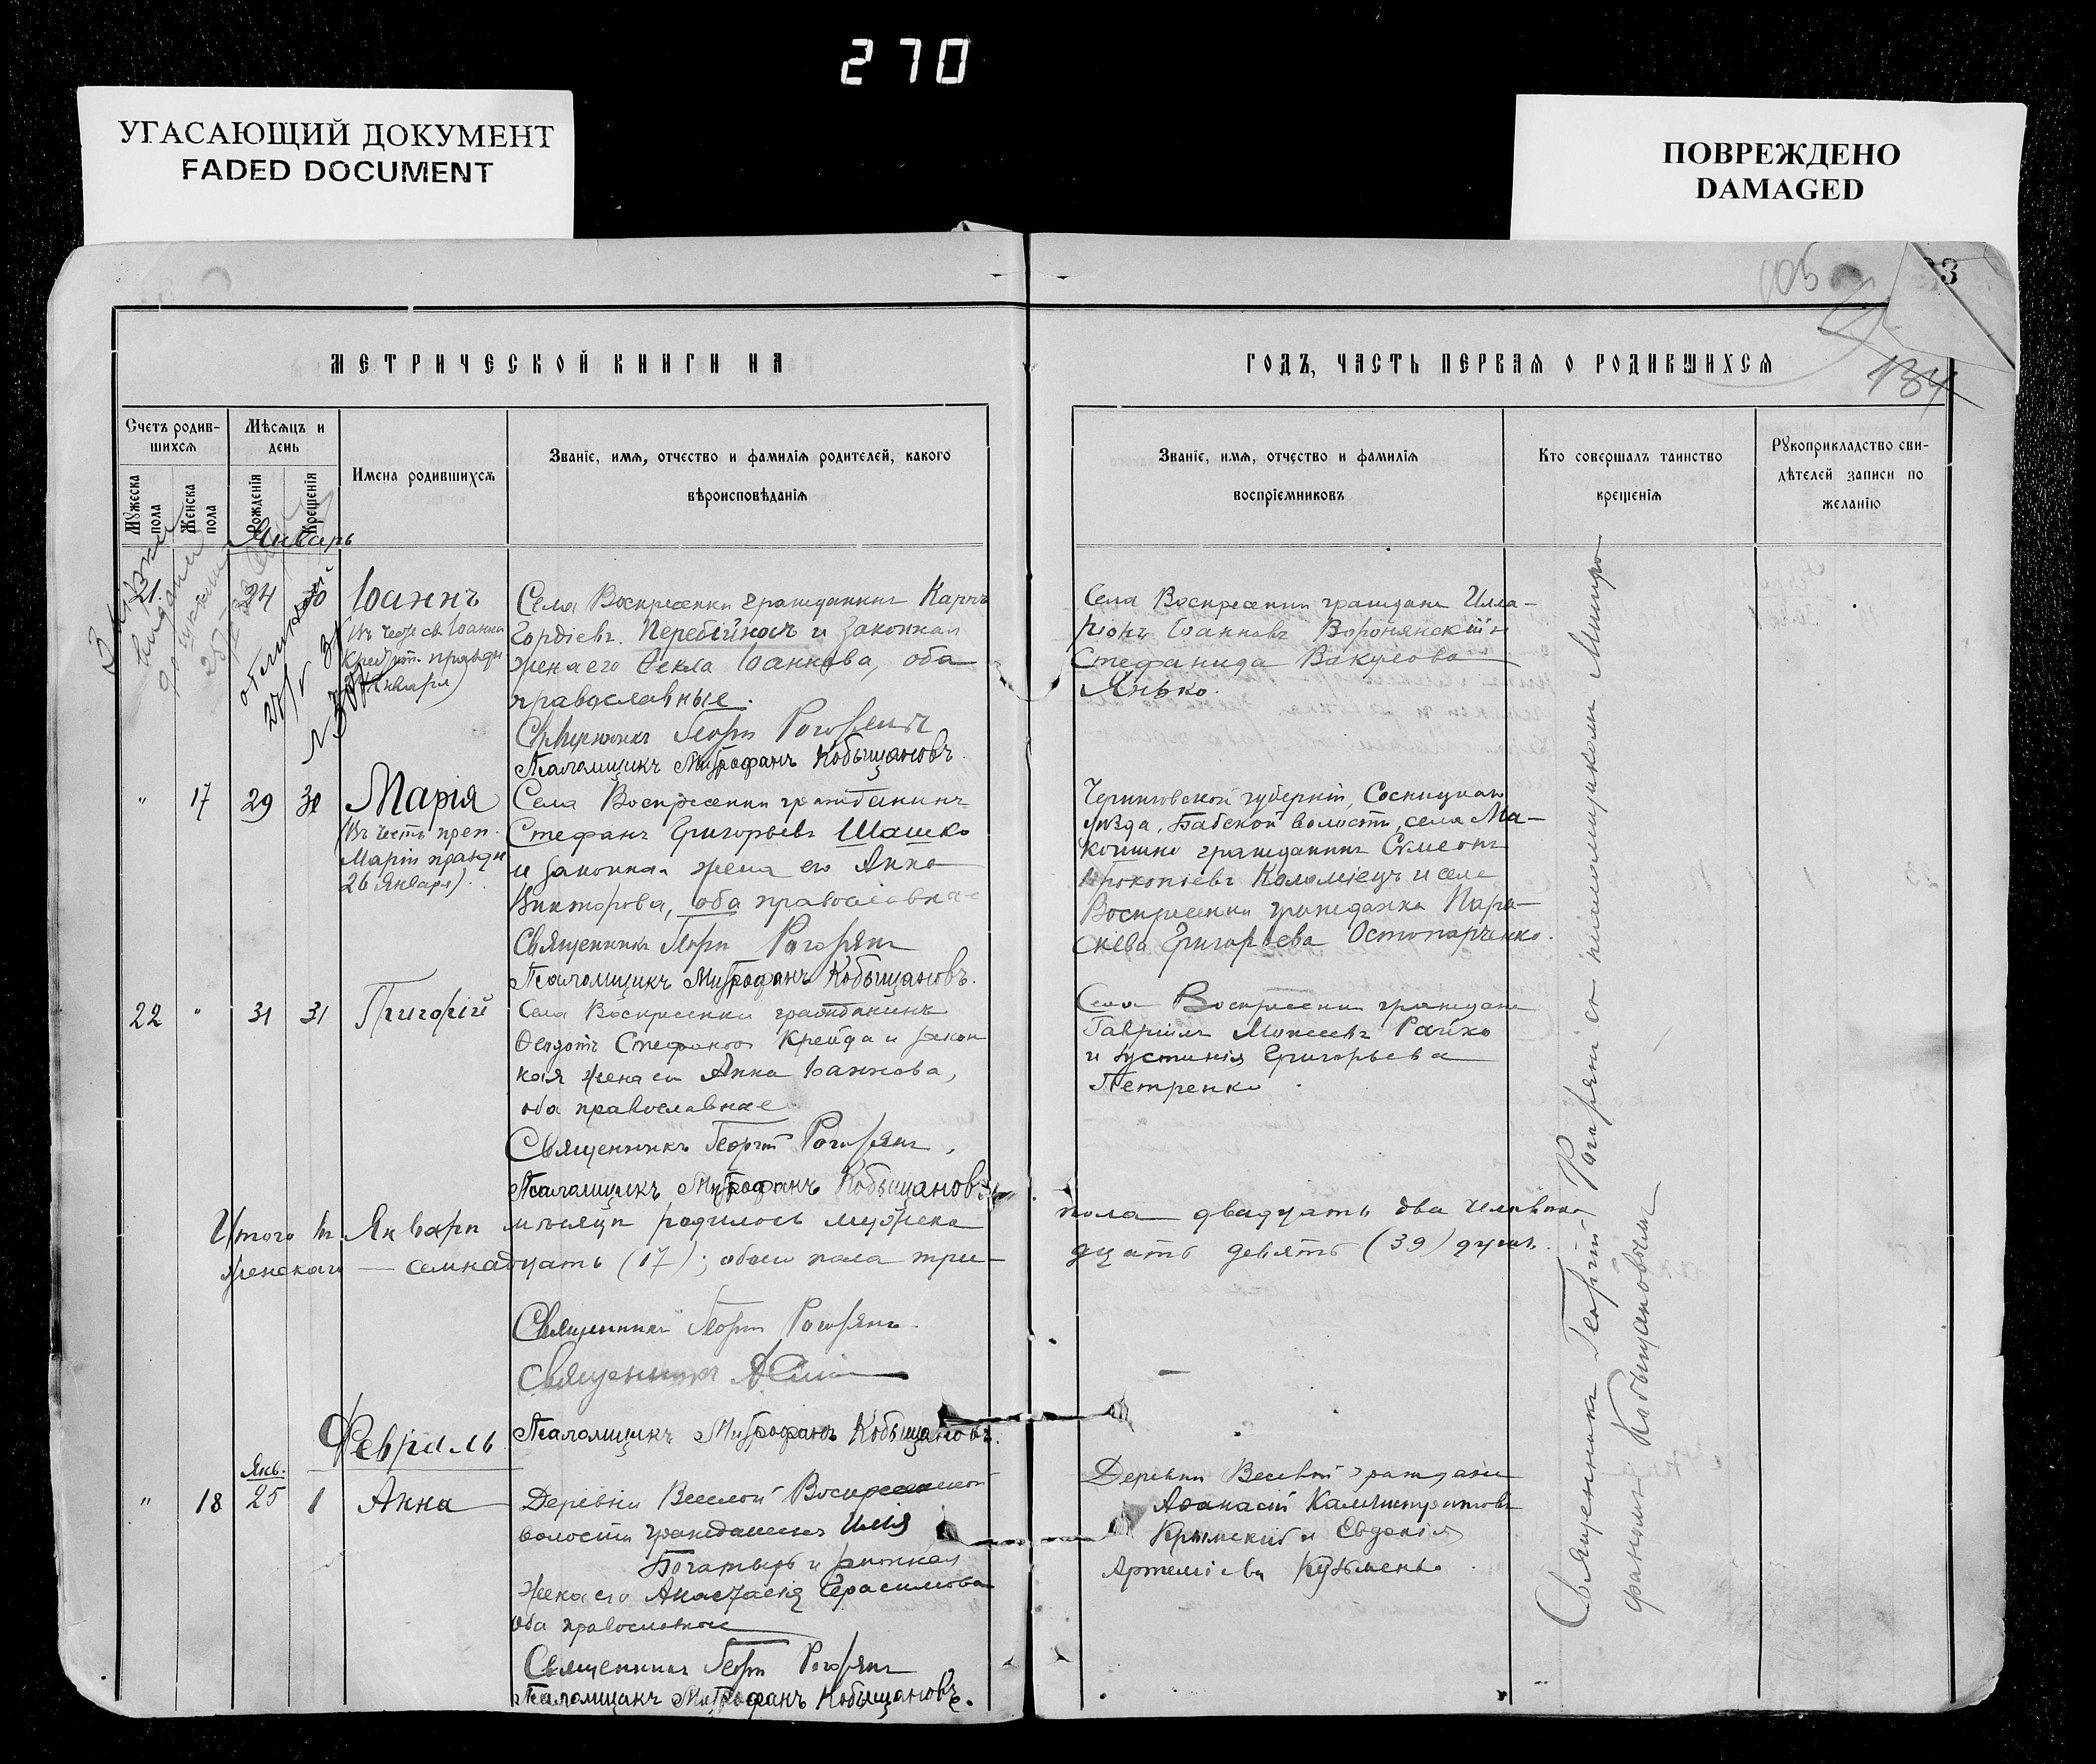 270
УГАСАЮЩИЙ ДОКУМЕНТ
FADED DOCUMENT
ПОВРЕЖДЕНО
DAMAGED
105
3
134
МЕТРИЧЕСКОЙ КНИГИ НА
ГОДЪ, ЧАСТЬ ПЕРВАЯ О РОДИВШИХСЯ
Счетъ родив-
шихся
Мужеска
пола
Женска
пола
Мѣсяцъ и
день
Рожденія
Крещенія
Имена родившихся
Званіе, имя, отчество и фамилія родителей, какого
вѣроисповѣданія
Званіе, имя, отчество и фамилія
воспріємниковъ
Кто совершалъ таинство
крещенія
Рукоприкладство сви-
дѣтелей записи по
желанію
Январь
21. 24 30 Іоаннъ
(Въ честь св. Іоанна
Января)
Села Воскресенки гражданинъ Карпъ
Гордіевъ Перебійносъ и законная
жена его Ѳекла Іоаннова, оба
православные.
Священникъ Георгій
Псаломщикъ Митрофанъ Кобыщановъ.
Села Воскресенки граждане Илла-
ріонъ Іоанновъ Воронянскій и
Стефанида Вакулова
Янько.
" 17 29 30 Марія
(Въ честь преп.
Маріи праздн
26 Января).
Села Воскресенки гражданинъ
Стефанъ Григорьевъ Шашко
и законная жена его Анна
Викторова, оба православные
Священникъ Георгій
Псаломщикъ Митрофанъ Кобыщановъ.
Черниговской губерніи, Сосницкаго
уѣзда, Бабской волости, села Ма-
кошино гражданинъ Симеонъ
Прокопіевъ Коломіецъ и села
Воскресенки гражданка Пара-
скева Григорьева Остопарченко.
22 " 31 31 Григорій
Села Воскресенки гражданинъ
Ѳеодотъ Стефановъ Крейда и закон
ная жена его Анна Іоаннова,
оба православные.
Священникъ Георгій
Псаломщикъ Митрофанъ Кобыщановъ
Села Воскресенки граждане
Гавріилъ Моисеевъ Райко
и Іустинія Григорьева
Петренко.
Итого въ Январѣ мѣсяцѣ родилось мужеска пола двадцать два человѣка
женскаго — семнадцать (17); обоего пола три- дцать девять (39) душъ.
Священникъ Георгій
Священникъ
Псаломщикъ Митрофанъ Кобыщановъ.
Февраль
" 18 Янв. 25 1 Анна
Деревни Веселой Воскресенской
волости гражданинъ Илія
Богатырь и законная
жена его Анастасія Герасимова
оба православные
Священникъ Георгій
Псаломщикъ Митрофанъ Кобыщановъ.
Деревни Веселой граждане
Аѳанасій Каллистратовъ
Крымскій и Евдокія
Артеміева Кузьменко.
Священникъ Георгій съ псаломщикомъ Митро
фаномъ Кобыщановымъ